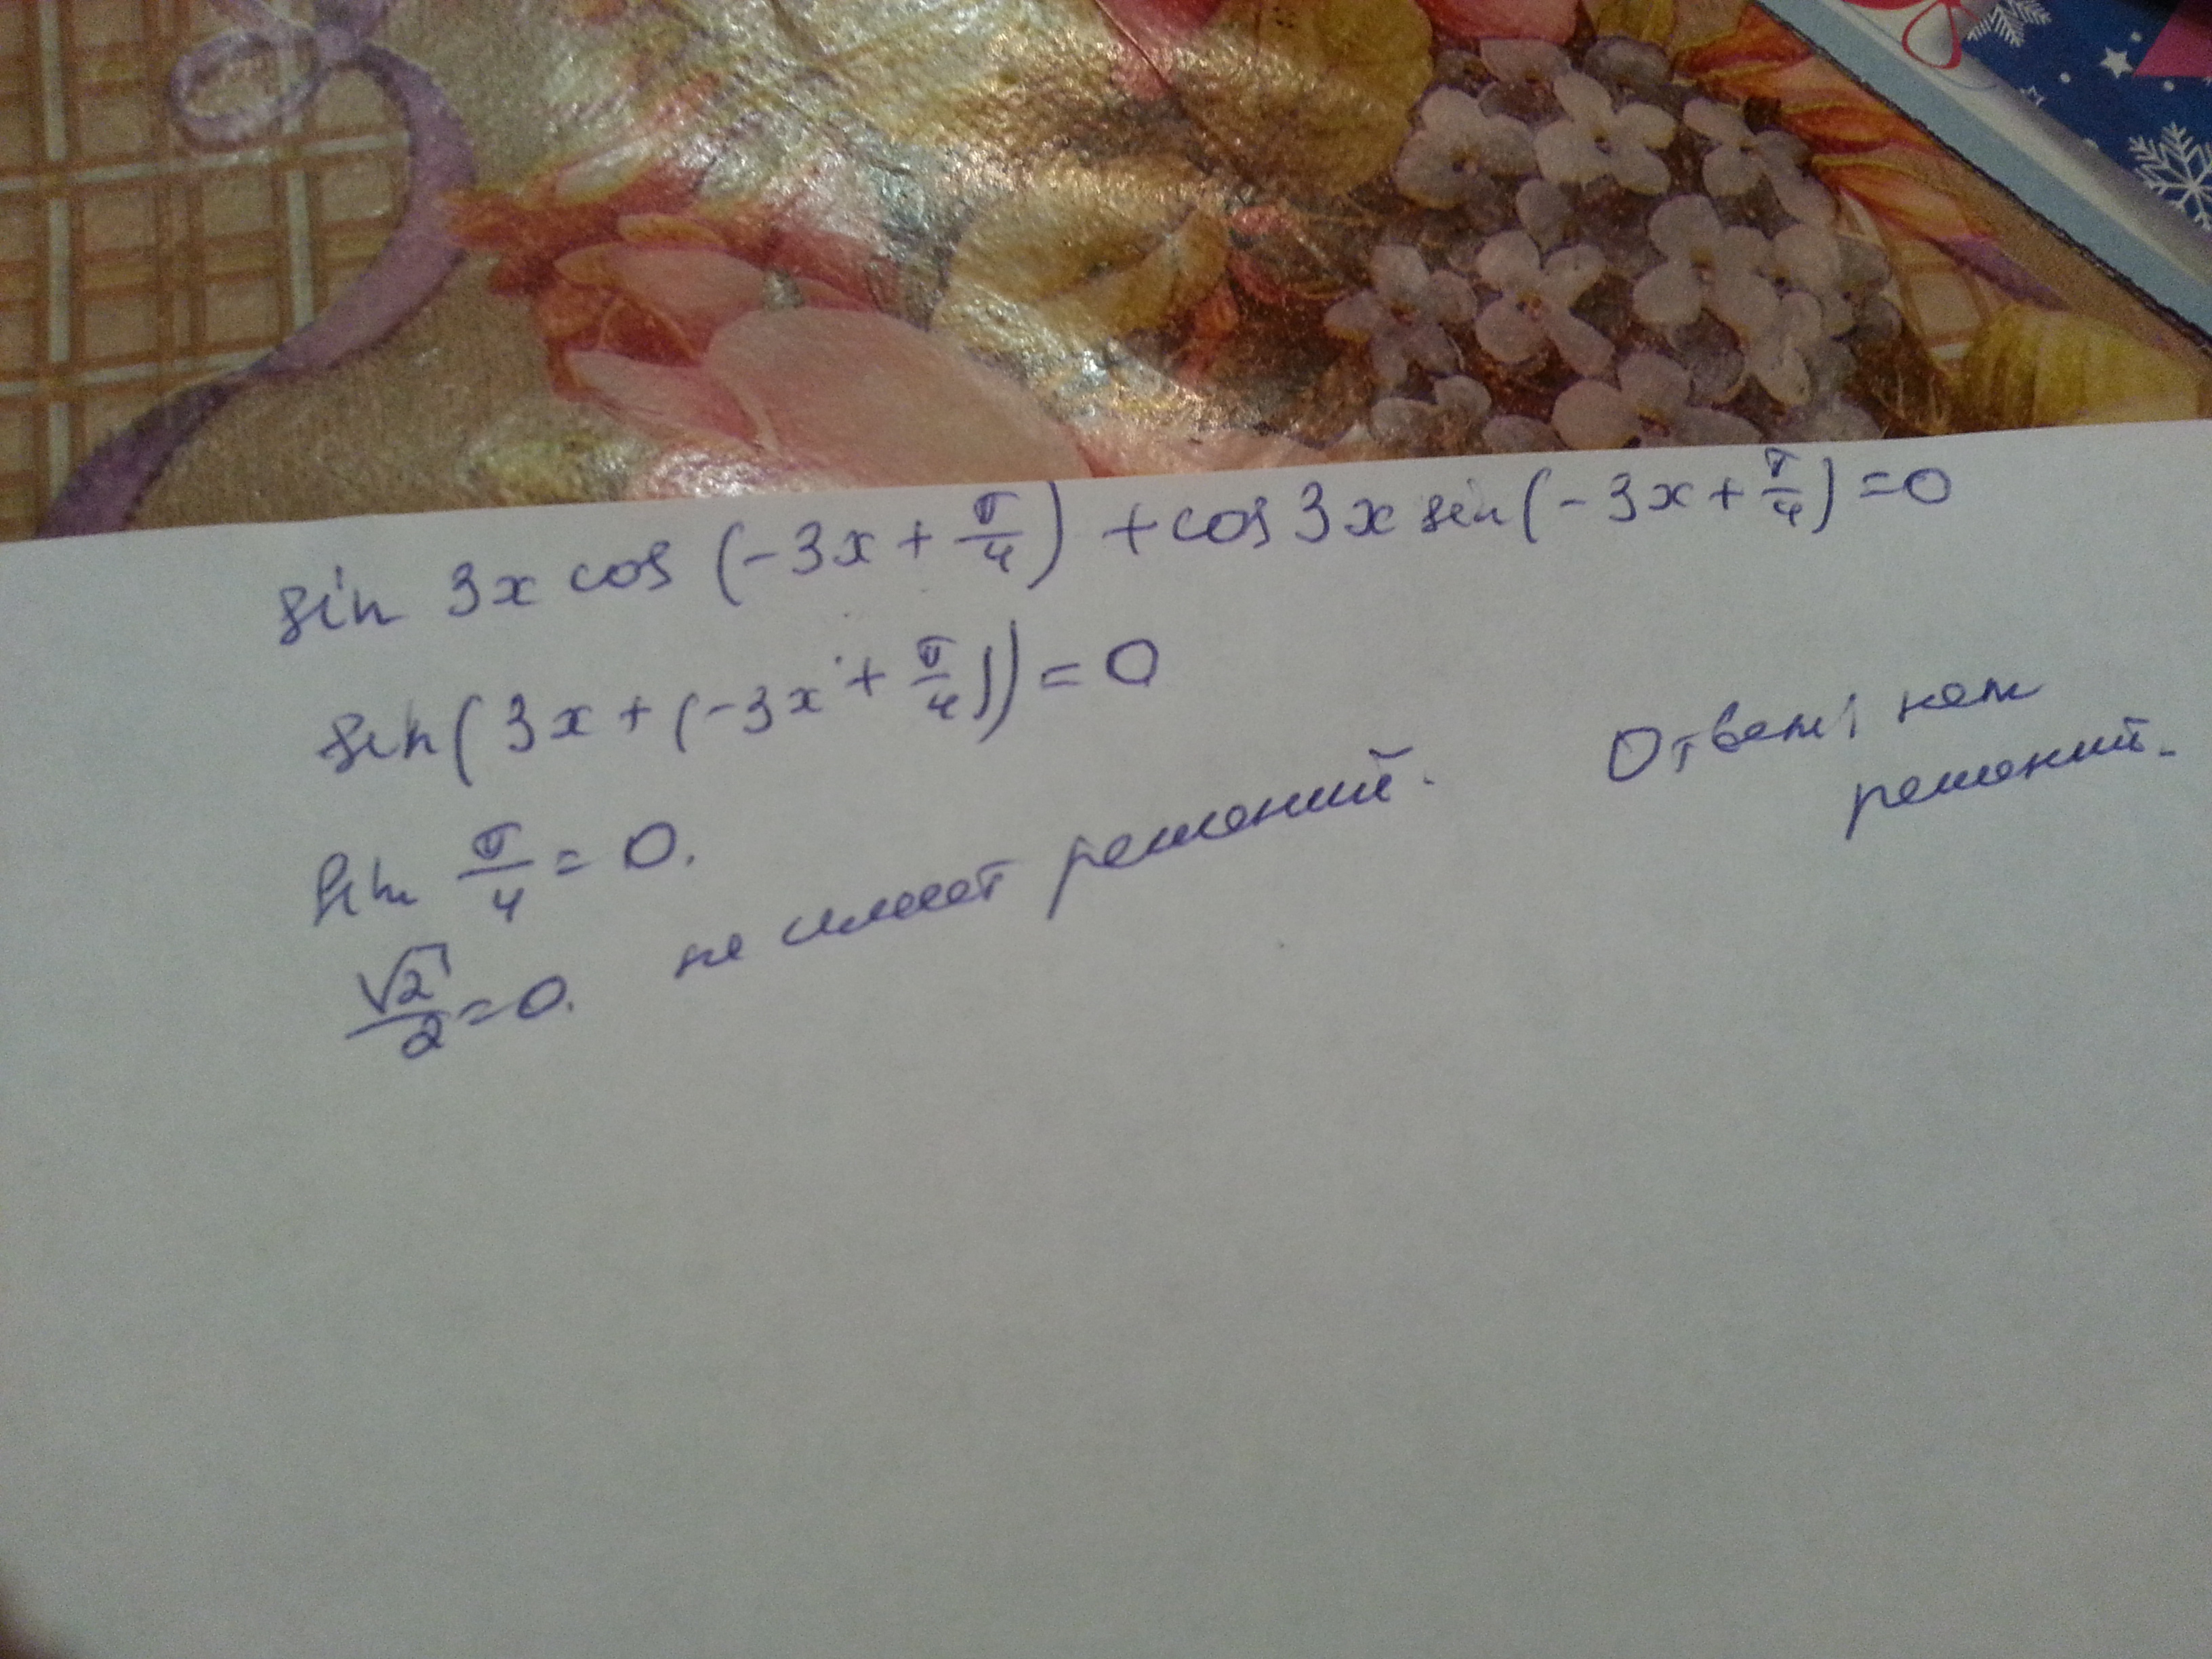 sin 3x cos (-3x + π/4) + cos 3x sin (-3x + π/4) = 0
sin (3x + (-3x + π/4)) = 0
sin π/4 = 0.
√2/2 = 0. не имеет решений. Ответ: нет
решений.